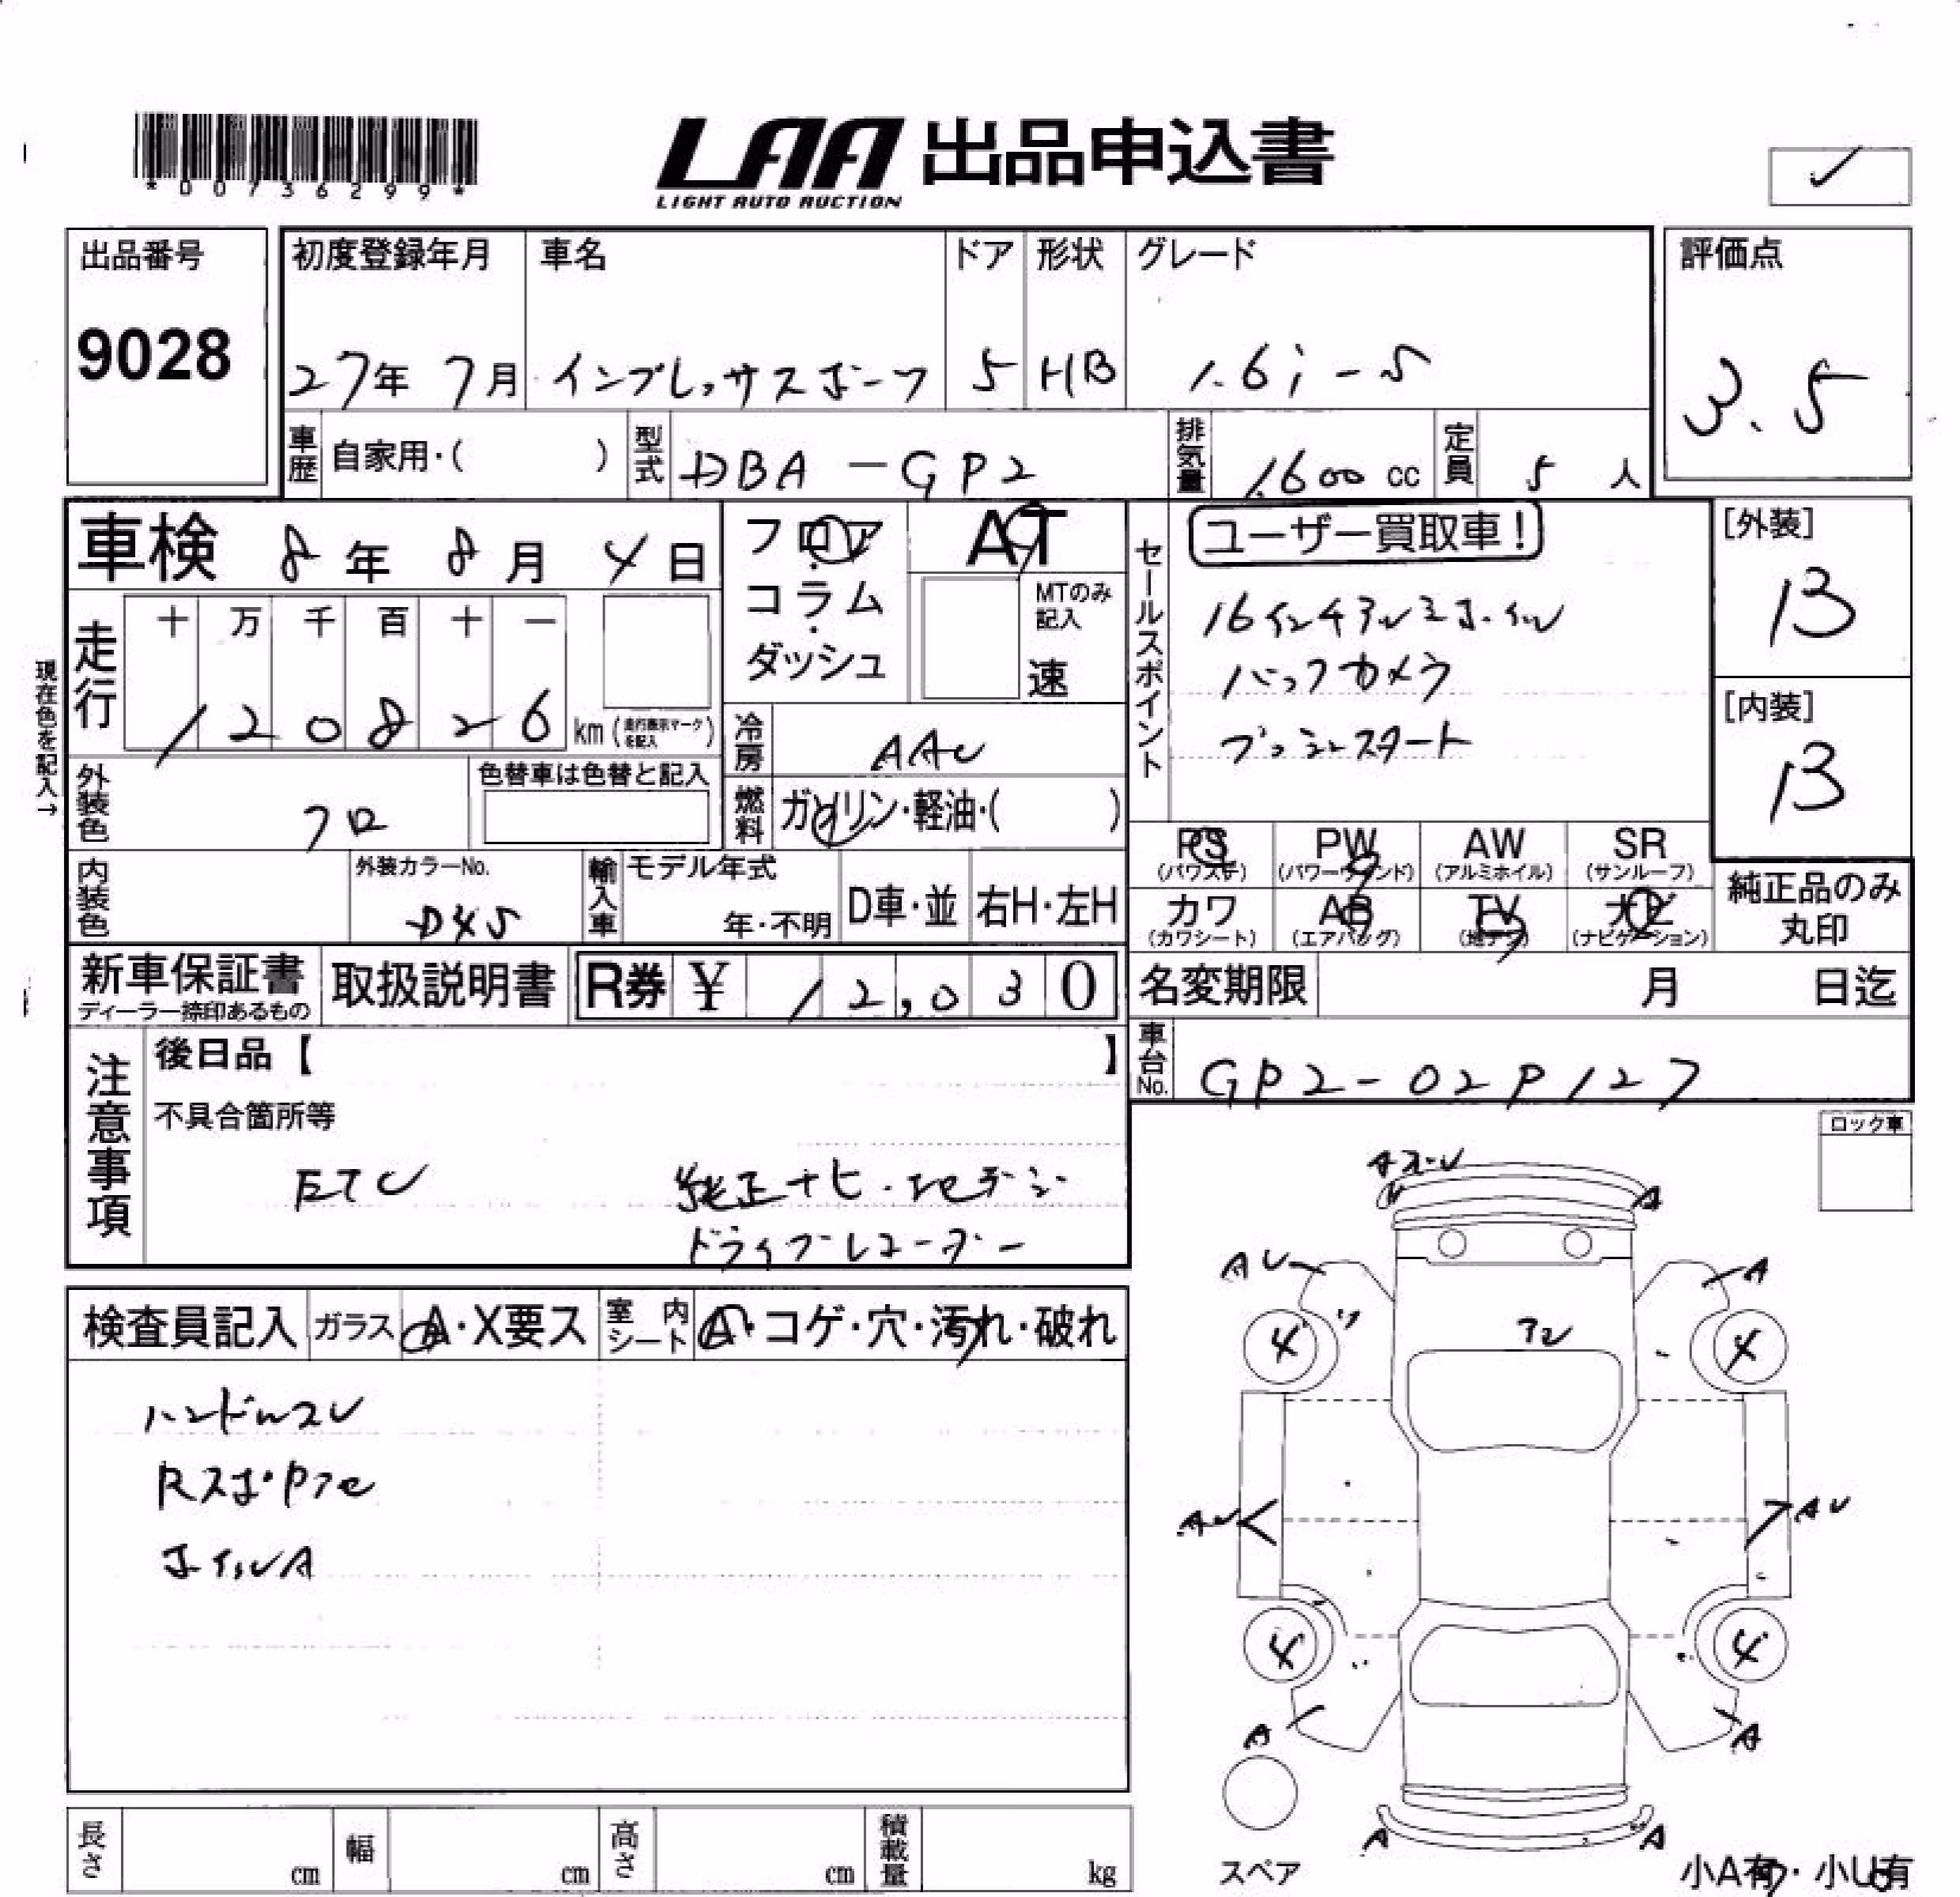 *00736299*
LAA 出品申込書
LIGHT AUTO AUCTION
出品番号
9028
初度登録年月
27年 7月
車名
インプレッサスポーツ
ドア
5
形状
HB
グレード
1.6i-S
評価点
3.5
車歴 自家用・( )
型式 DBA-GP2
排気量 1600 cc
定員 5 人
車検 8年 8月 4日
フロア・コラム・ダッシュ
AT
MTのみ記入
速
セールスポイント
ユーザー買取車!
16インチアルミホイル
バックカメラ
プッシュスタート
[外装]
B
[内装]
B
現在色を記入→
走行
十 万 千 百 十 一
1 2 0 8 2 6 km (走行表示マークを記入)
冷房 AAC
外装色 クロ
色替車は色替と記入
燃料 ガソリン・軽油・( )
PS (パワステ)
PW (パワーウインド)
AW (アルミホイル)
SR (サンルーフ)
カワ (カワシート)
AB (エアバッグ)
TV (地デジ)
ナビ (ナビゲーション)
純正品のみ丸印
内装色
外装カラーNo.
D4S
輸入車
モデル年式
年・不明
D車・並
右H・左H
新車保証書
ディーラー捺印あるもの
取扱説明書
R券 ¥ 12,030
名変期限 月 日迄
車台No. GP2-02P127
注意事項
後日品【 】
不具合箇所等
ETC 純正ナビ・地デジ
ドライブレコーダー
ロック車
検査員記入
ガラス A・X要ス
室内シート A・コゲ・穴・汚れ・破れ
ハンドルスレ
ホイルA
A
AU
A
4
4
AU
AU
4
4
A
A
A
A
スペア
小A有・小U有
長さ cm
幅 cm
高さ cm
積載量 kg